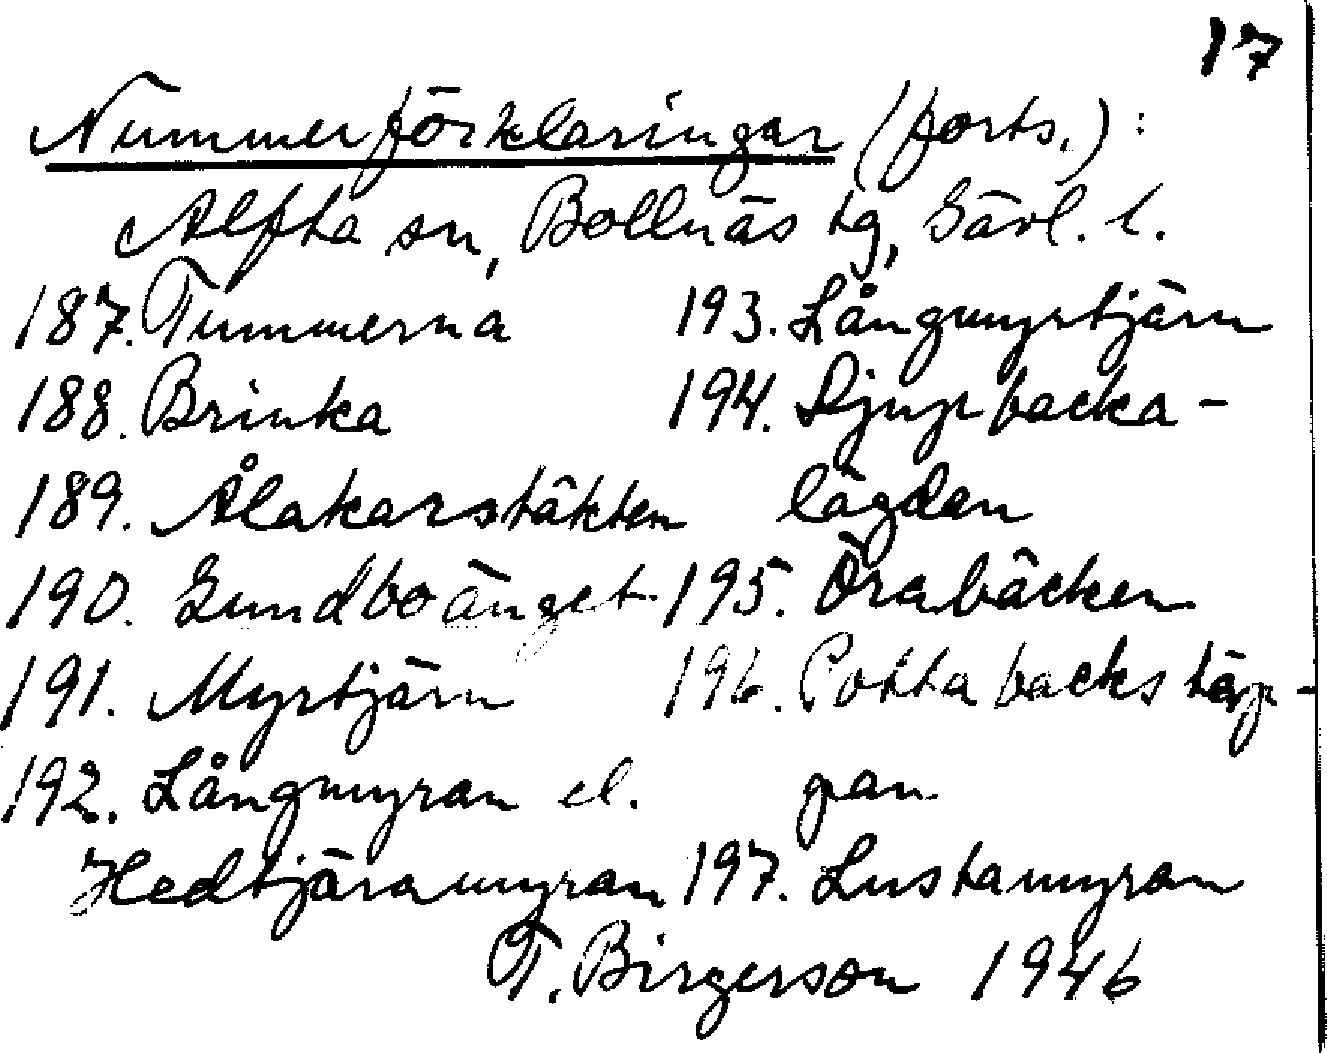 17
Nummerförklaringar (forts.):
Alfta sn, Bollnäs tg, Gävl. l.
187. Tummerna
188. Brinka
189. Ålakarstäkten
190. Sundboänget
191. Myrtjärn
192. Långmyran el.
Hedtjäramyran
193. Långmyrtjärn
194. Djupbacka-
lägdan
195. Örabäcken
196. Pottabackstäp-
pan
197. Lustamyran
T. Birgerson 1946